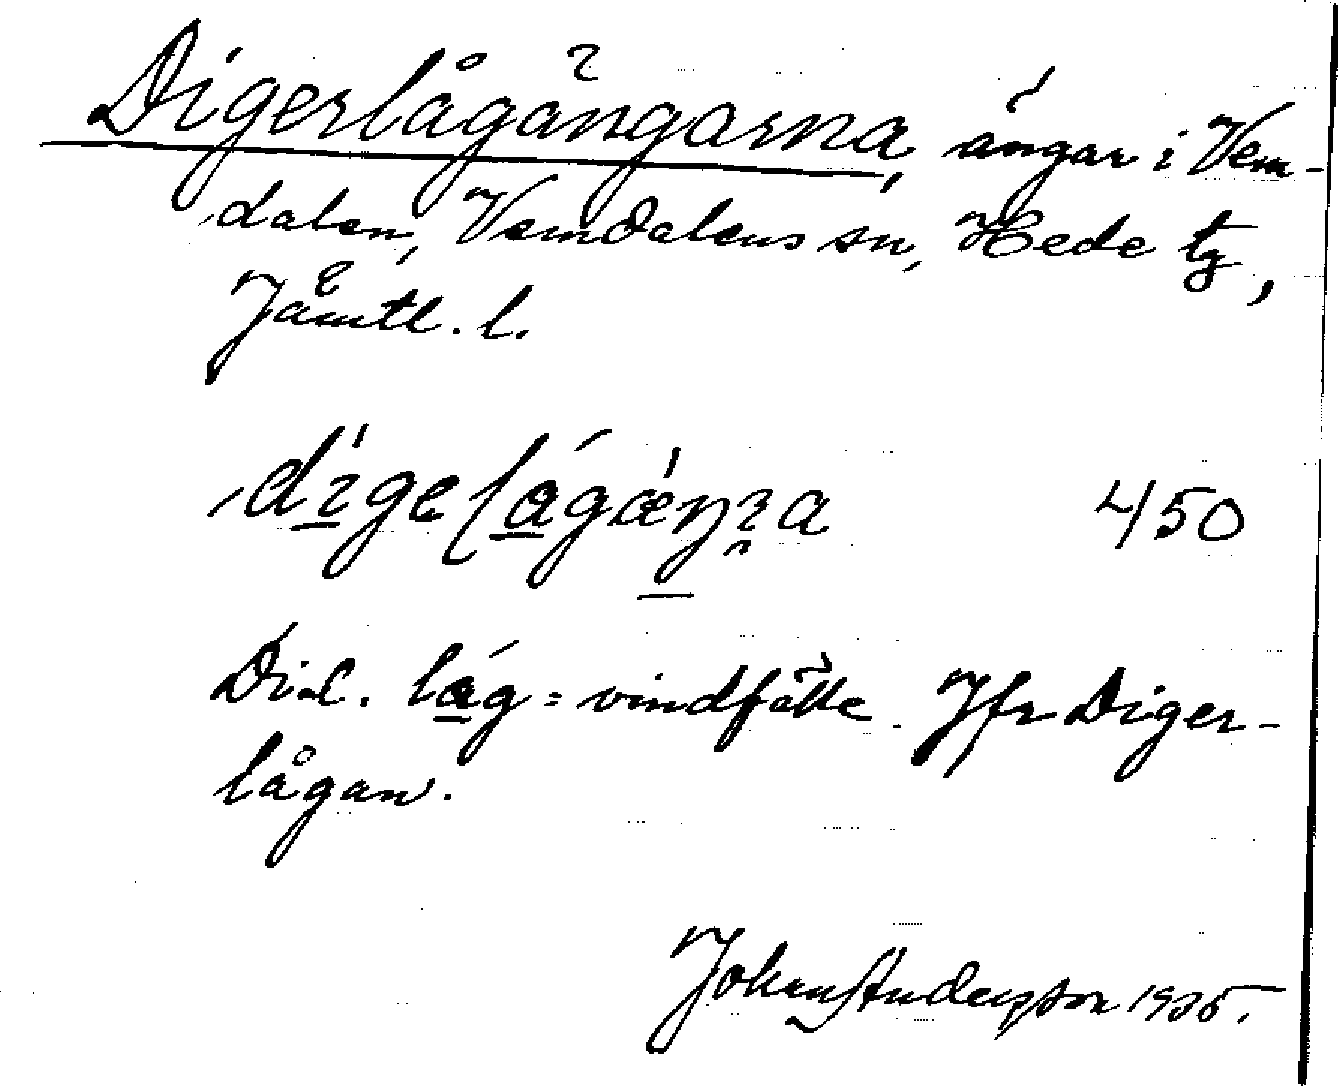 Digerlågängarna, ängar i Vem-
dalen, Vemdalens sn, Hede tg,
Jämtl. l.
450
Dial. låg = vindfälle. Jfr Diger-
lågan.
Johan Andersson 1935.